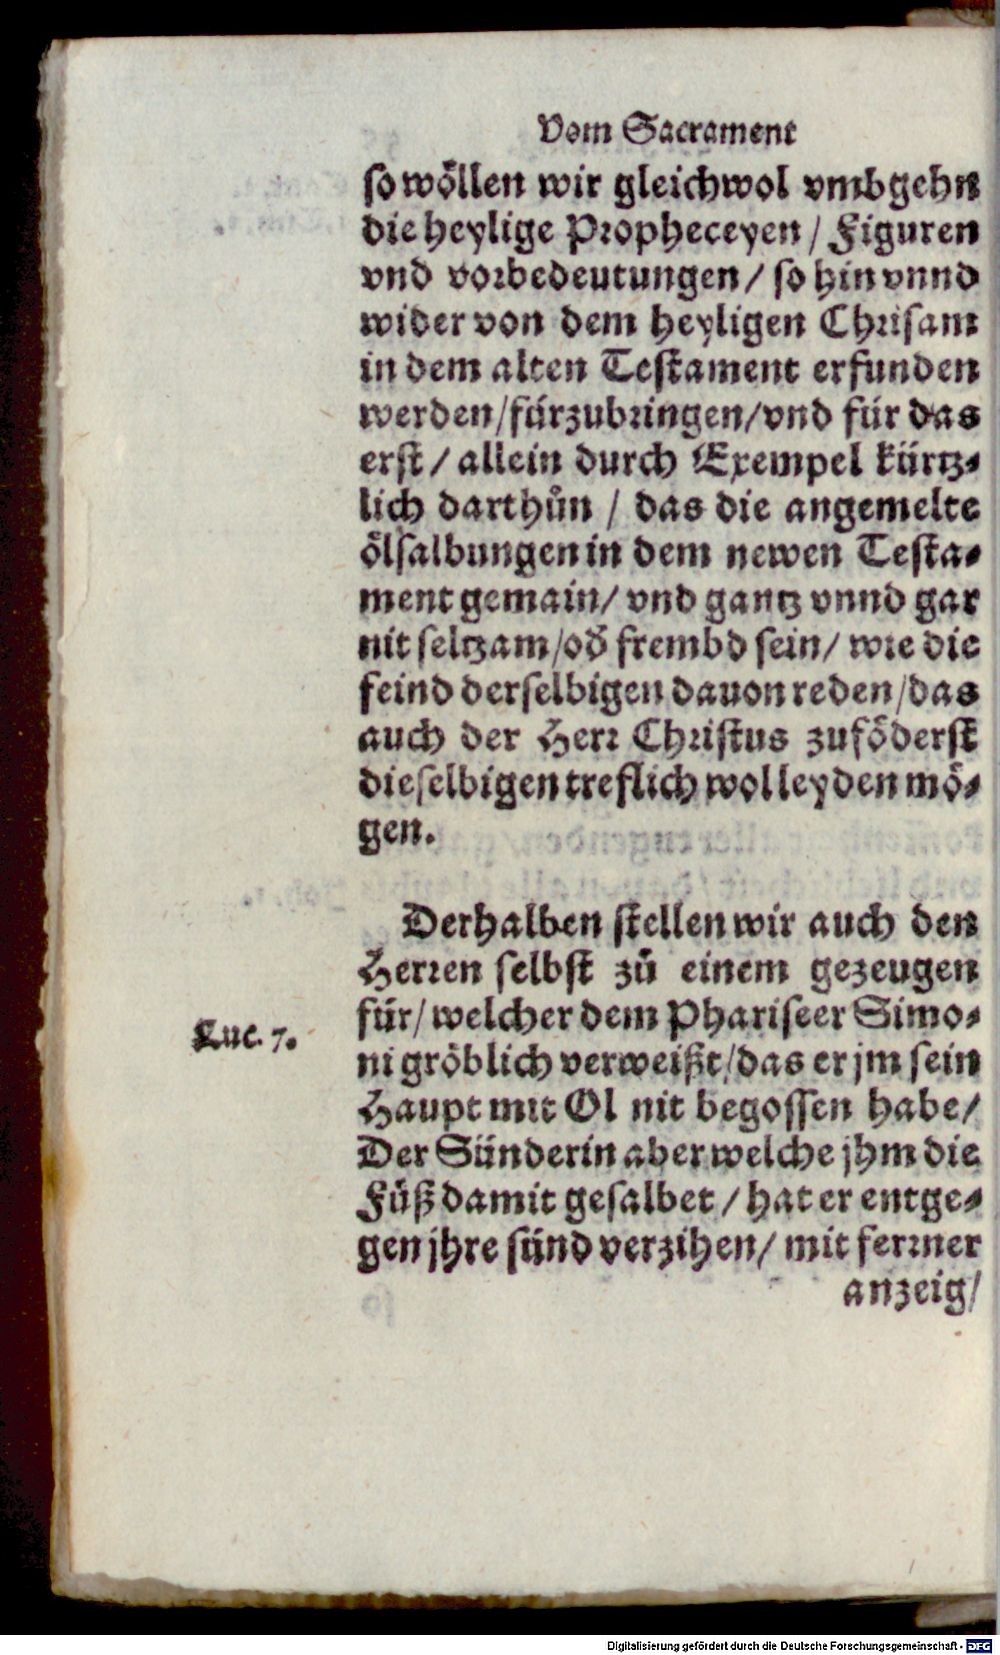 Vom Sacrament
so wöllen wir gleichwol vmbgehn
die heylige Propheceyen / Figuren
vnd vorbedeutungen / so hin vnnd
wider von dem heyligen Chrisam
in dem alten Testament erfunden
werden / fürzubringen / vnd für das
erst / allein durch Exempel kürtz-
lich darthůn / das die angemelte
ölsalbungen in dem newen Testa-
ment gemain / vnd gantz vnnd gar
nit seltzam / od̄ frembd sein / wie die
feind derselbigen dauon reden / das
auch der Herr Christus zuföderst
dieselbigen treflich wol leyden mö-
gen.
Derhalben stellen wir auch den
Herren selbst zů einem gezeugen
für / welcher dem Phariseer Simo-
Luc. 7.
ni gröblich verweißt / das er jm sein
Haupt mit Ol nit begossen habe /
Der Sünderin aber welche jhm die
Füß damit gesalbet / hat er entge-
gen jhre sünd verzihen / mit ferrner
anzeig /
Digitalisierung gefördert durch die Deutsche Forschungsgemeinschaft - DFG